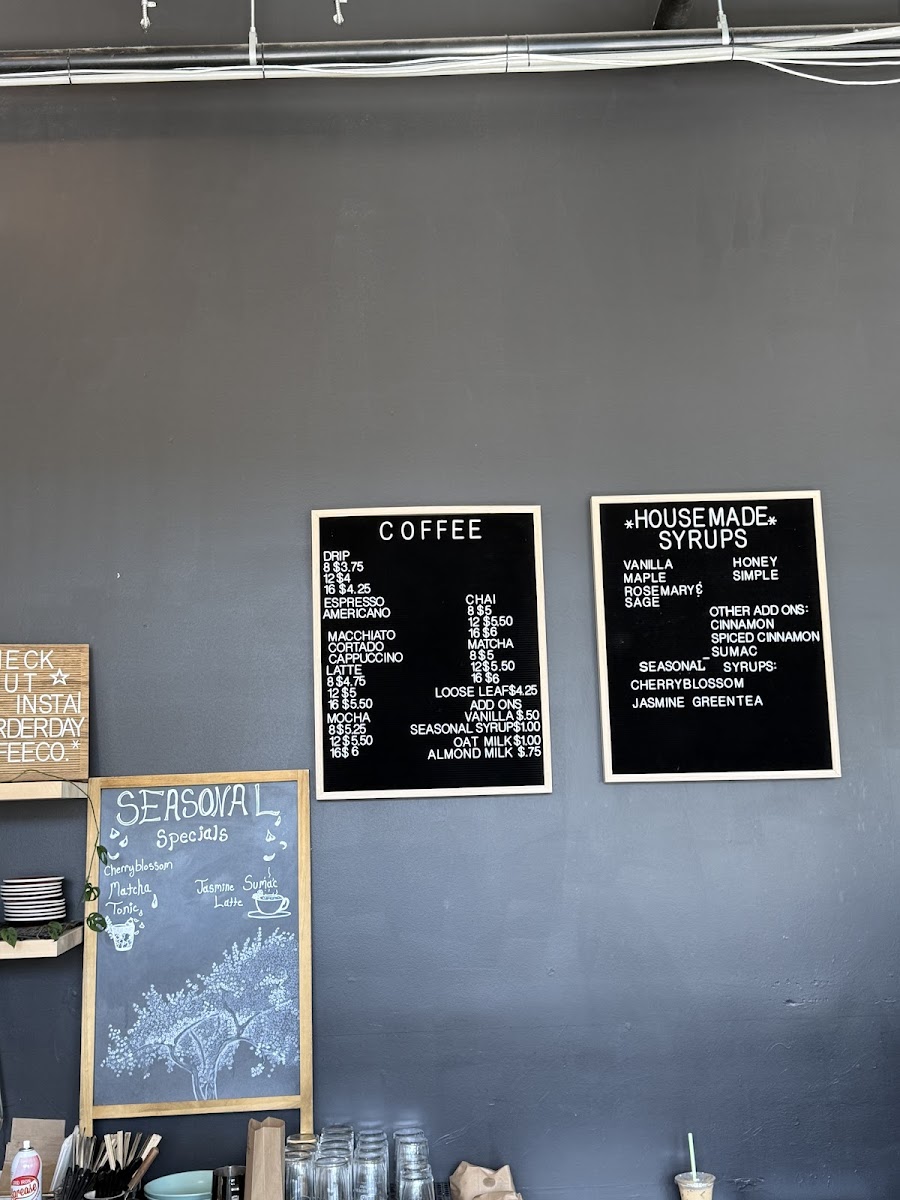 COFFEE
DRIP
8 $3.75
12 $4
16 $4.25
ESPRESSO
AMERICANO
MACCHIATO
CORTADO
CAPPUCCINO
LATTE
8 $4.75
12 $5
16 $5.50
MOCHA
8 $5.25
12 $5.50
16 $ 6
CHAI
8 $5
12 $5.50
16 $6
MATCHA
8 $5
12 $5.50
16 $6
LOOSE LEAF $4.25
ADD ONS
VANILLA $.50
SEASONAL SYRUP $1.00
OAT MILK $1.00
ALMOND MILK $.75
*HOUSEMADE*
SYRUPS
VANILLA
MAPLE
ROSEMARY &
SAGE
HONEY
SIMPLE
OTHER ADD ONS:
CINNAMON
SPICED CINNAMON
SUMAC
SEASONAL SYRUPS:
CHERRYBLOSSOM
JASMINE GREEN TEA
HECK
UT ☆
INSTA
RDERDAY
FEECO.*
SEASONAL
Specials
Cherryblossom
Matcha
Tonic
Jasmine Sumac
Latte